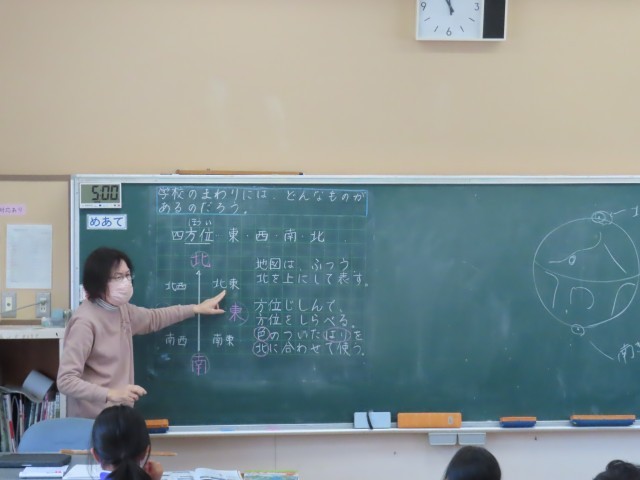 5:00
めあて
学校のまわりには、どんなものが
あるのだろう。
ほうい
四方位 東・西・南・北
北
北西 北東
東
南西 南東
南
地図は ふつう
北を上にして表す。
方位じしんで、
方位をしらべる。
色のついたはりを
北に合わせて使う。
9
6
南